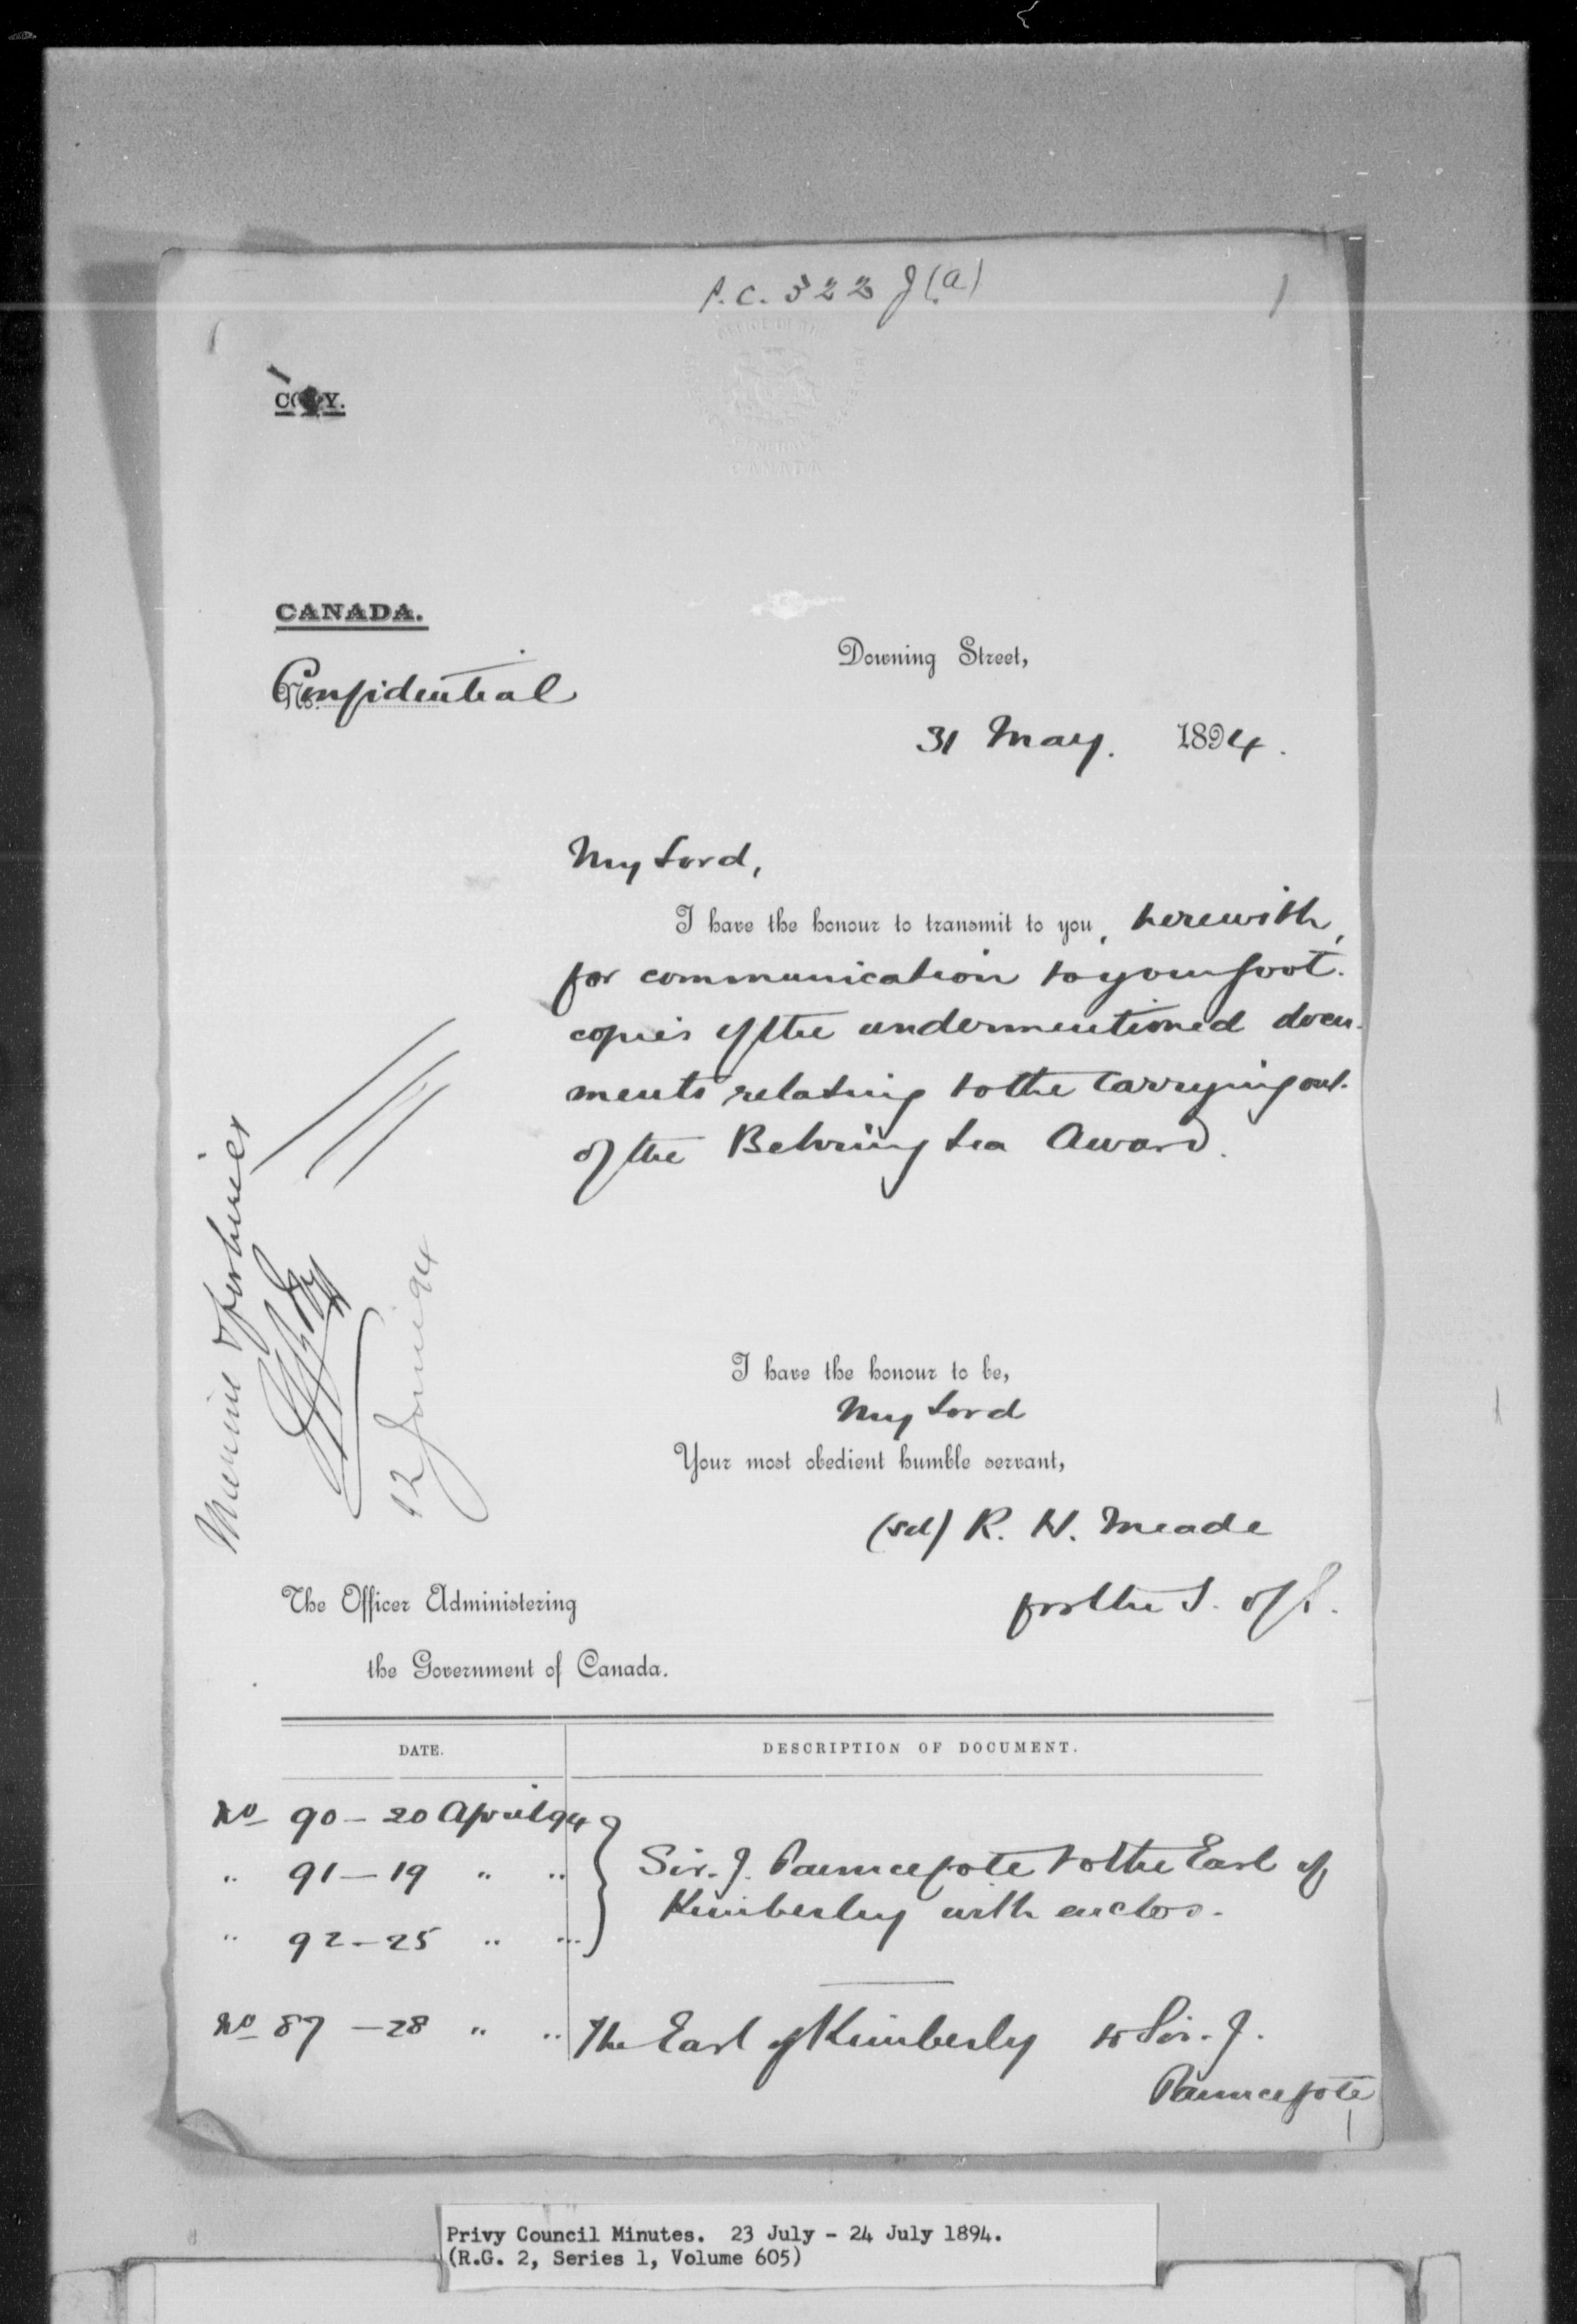 P.C. 322 J (a)
OFFICE OF THE
CANADA
COPY.
CANADA.
Confidential
No.
Downing Street,
31 May. 1894.
My Lord,
I have the honour to transmit to you, herewith,
for communication to your Govt.
copies of the undermentioned docu-
ments relating to the carrying out
of the Behring Sea Award.
Marine & Fisheries
12 June 94
I have the honour to be,
My Lord
Your most obedient humble servant,
(sd) R. H. Meade
for the S. of S.
The Officer Administering
the Government of Canada.
DATE. DESCRIPTION OF DOCUMENT.
No 90 – 20 April 94
" 91 – 19 " "
" 92 – 25 " "
Sir. J. Pauncefote to the Earl of
Kimberley with enclos.
No 87 – 28 " " The Earl of Kimberly to Sir. J.
Pauncefote
Privy Council Minutes. 23 July - 24 July 1894.
(R.G. 2, Series 1, Volume 605)